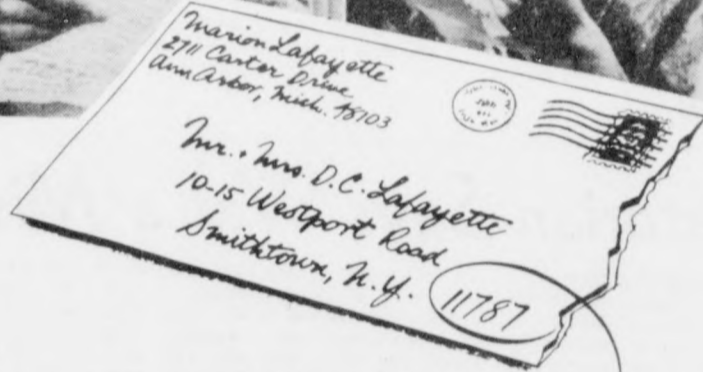 Marion Lafayette
2711 Carter Drive
Ann Arbor, Mich. 48103
Mr. + Mrs. D.C. Lafayette
10-15 Westport Road
Smithtown, N.Y. 11787